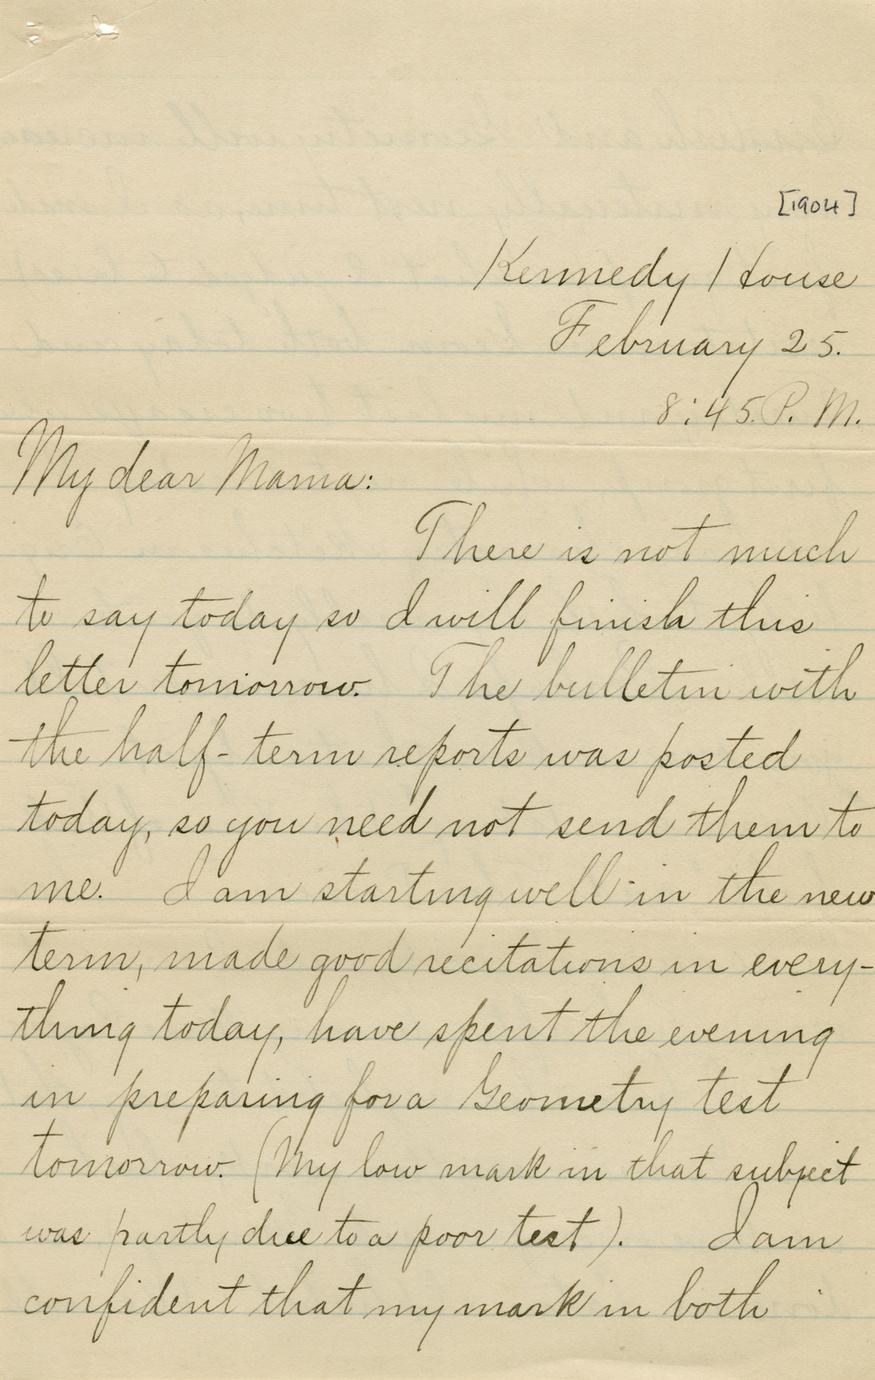 [1904]
Kennedy House
February 25.
8:45 P. M.
My dear Mama:
There is not much
to say today so I will finish this
letter tomorrow. The bulletin with
the half-term reports was posted
today, so you need not send them to
me. I am starting well in the new
term, made good recitations in every-
thing today, have spent the evening
in preparing for a Geometry test
tomorrow. (My low mark in that subject
was partly due to a poor test). I am
confident that my mark in both